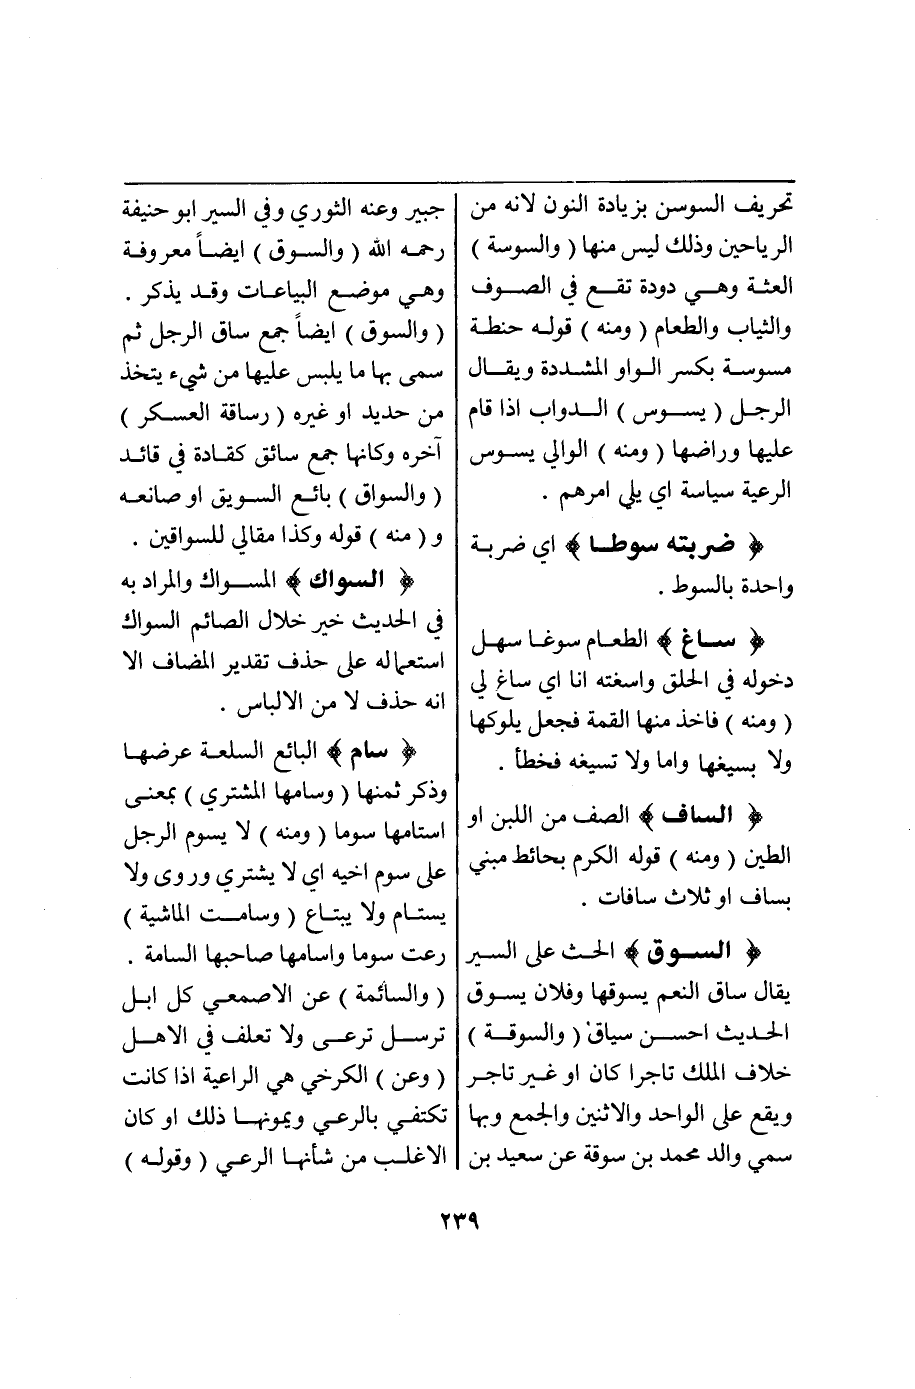 تحريف السوسن بزيادة النون لانه من
الرياحين وذلك ليس منها ( والسوسة )
العثة وهي دودة تقع في الصوف
والثياب والطعام ( ومنه ) قوله حنطة
مسوسة بكسر الواو المشددة ويقال
الرجل ( يسوس ) الدواب اذا قام
عليها وراضها ( ومنه ) الوالي يسوس
الرعية سياسة اي يلي امرهم .
﴿ ضربته سوطا ﴾ اي ضربة
واحدة بالسوط .
﴿ ساغ ﴾ الطعام سوغا سهل
دخوله في الحلق واسغته انا اي ساغ لي
( ومنه ) فاخذ منها القمة فجعل يلوكها
ولا يسيغها واما ولا تسيغه فخطأ .
﴿ الساف ﴾ الصف من اللبن او
الطين ( ومنه ) قوله الكرم بحائط مبني
بساف او ثلاث سافات .
﴿ السوق ﴾ الحث على السير
يقال ساق النعم يسوقها وفلان يسوق
الحديث احسن سياق ( والسوقة )
خلاف الملك تاجرا كان او غير تاجر
ويقع على الواحد والاثنين والجمع وبها
سمي والد محمد بن سوقة عن سعيد بن
جبير وعنه الثوري وفي السير ابو حنيفة
رحمه الله ( والسوق ) ايضاً معروفة
وهي موضع البياعات وقد يذكر .
( والسوق ) ايضاً جمع ساق الرجل ثم
سمى بها ما يلبس عليها من شيء يتخذ
من حديد او غيره ( رساقة العسكر )
آخره وكانها جمع سائق كقادة في قائد
( والسواق ) بائع السويق او صانعه
و ( منه ) قوله وكذا مقالي للسواقين .
﴿ السواك ﴾ المسواك والمراد به
في الحديث خير خلال الصائم السواك
استعماله على حذف تقدير المضاف الا
انه حذف لا من الالباس .
﴿ سام ﴾ البائع السلعة عرضها
وذكر ثمنها ( وسامها المشتري ) بمعنى
استامها سوما ( ومنه ) لا يسوم الرجل
على سوم اخيه اي لا يشتري وروى ولا
يستام ولا يبتاع ( وسامت الماشية )
رعت سوما واسامها صاحبها السامة .
( والسائمة ) عن الاصمعي كل ابل
ترسل ترعى ولا تعلف في الاهل
( وعن ) الكرخي هي الراعية اذا كانت
تكتفي بالرعي ويمونها ذلك او كان
الاغلب من شأنها الرعي ( وقوله )
٢٣٩